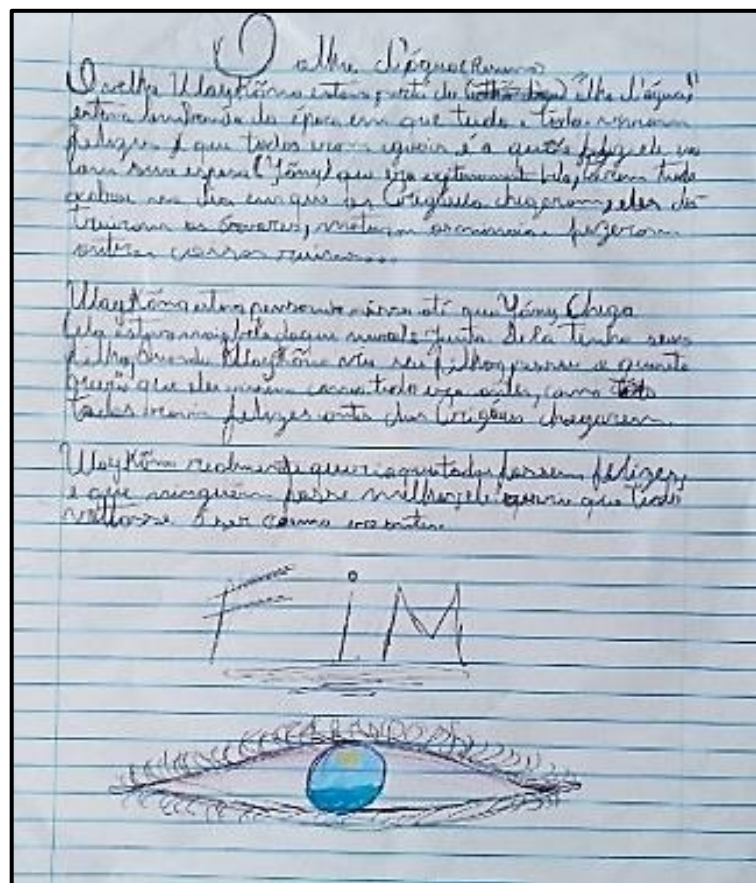 O olho d'água (Resumo)
O velho WayKõma estava perto do "olho d'água"
estava lembrando da época em que tudo e todos
felizes e que todos eram iguais e o quão feliz ele
com sua esposa (Yãmy) que era bela, porem tudo
acabou no dia em que os chegaram, eles des
truiram as árvores, mataram os animais e fizeram
outras coisas ruins...
WayKõma estava pensando nisso até que Yãmy Chega
Ela estava mais bela do que nunca e junto dela tinha seus
filhos, quando WayKõma viu seu filho pensou o quanto
queria que eles como tudo era antes, como
todos eram felizes antes dos chegarem.
WayKõma realmente queria que todos fossem felizes,
e que ninguém fosse melhor, ele queria que tudo
voltasse a ser como era antes.
FIM